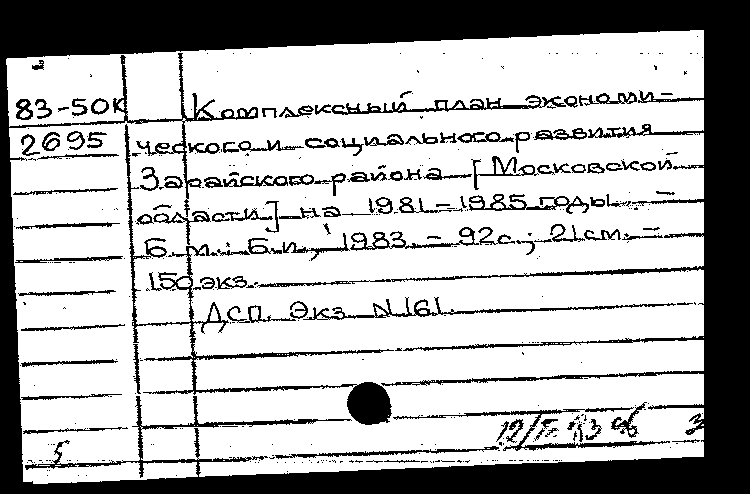 83-50К Комплексный план экономи-
2695 ческого и социального развития
Зарайского района [Московской
области] на 1981-1985 годы. -
Б.м.: Б.и., 1983. - 92с.; 21см. -
150 экз.
ДСП. Экз N 161.
5